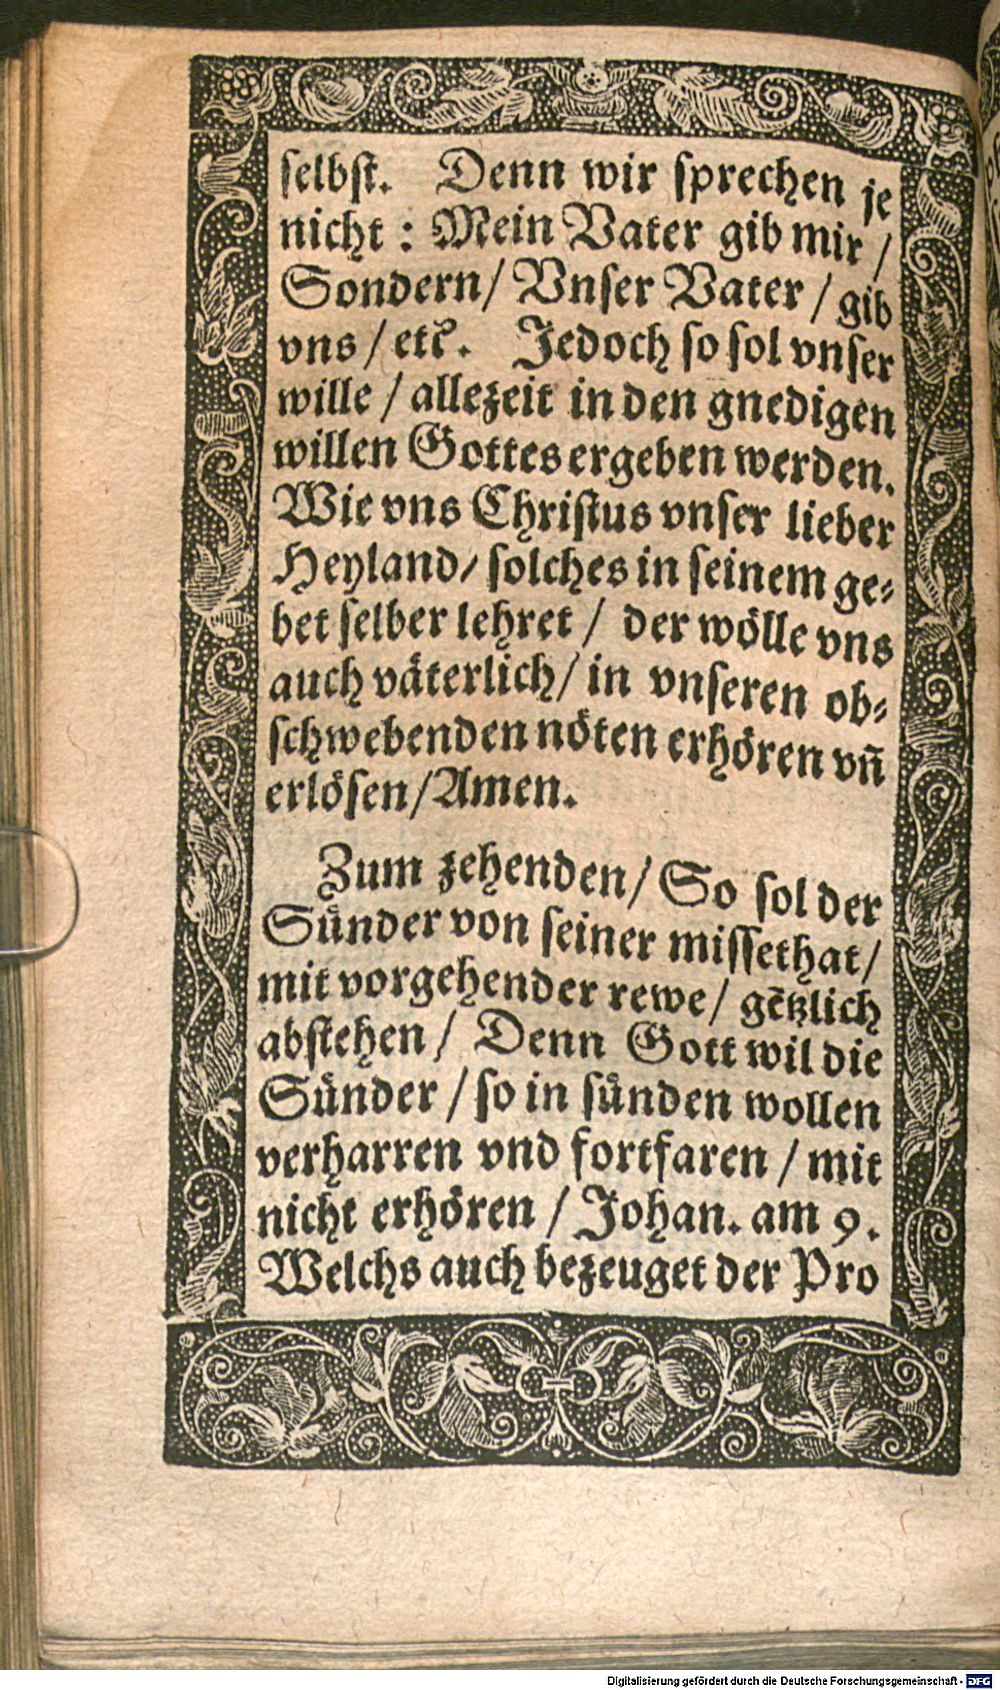 selbst. Denn wir sprechen je
nicht : Mein Vater gib mir /
Sondern / Vnser Vater / gib
vns / etc̃. Jedoch so sol vnser
wille / allezeit in den gnedigen
willen Gottes ergeben werden.
Wie vns Christus vnser lieber
Heyland / solches in seinem ge-
bet selber lehret / der wölle vns
auch väterlich / in vnseren ob-
schwebenden nöten erhören vñ
erlösen / Amen.
Zum zehenden / So sol der
Sünder von seiner missethat /
mit vorgehender rewe / gẽtzlich
abstehen / Denn Gott wil die
Sünder / so in sünden wollen
verharren vnd fortfaren / mit
nicht erhören / Johan. am 9.
Welchs auch bezeuget der Pro
Digitalisierung gefördert durch die Deutsche Forschungsgemeinschaft - DFG